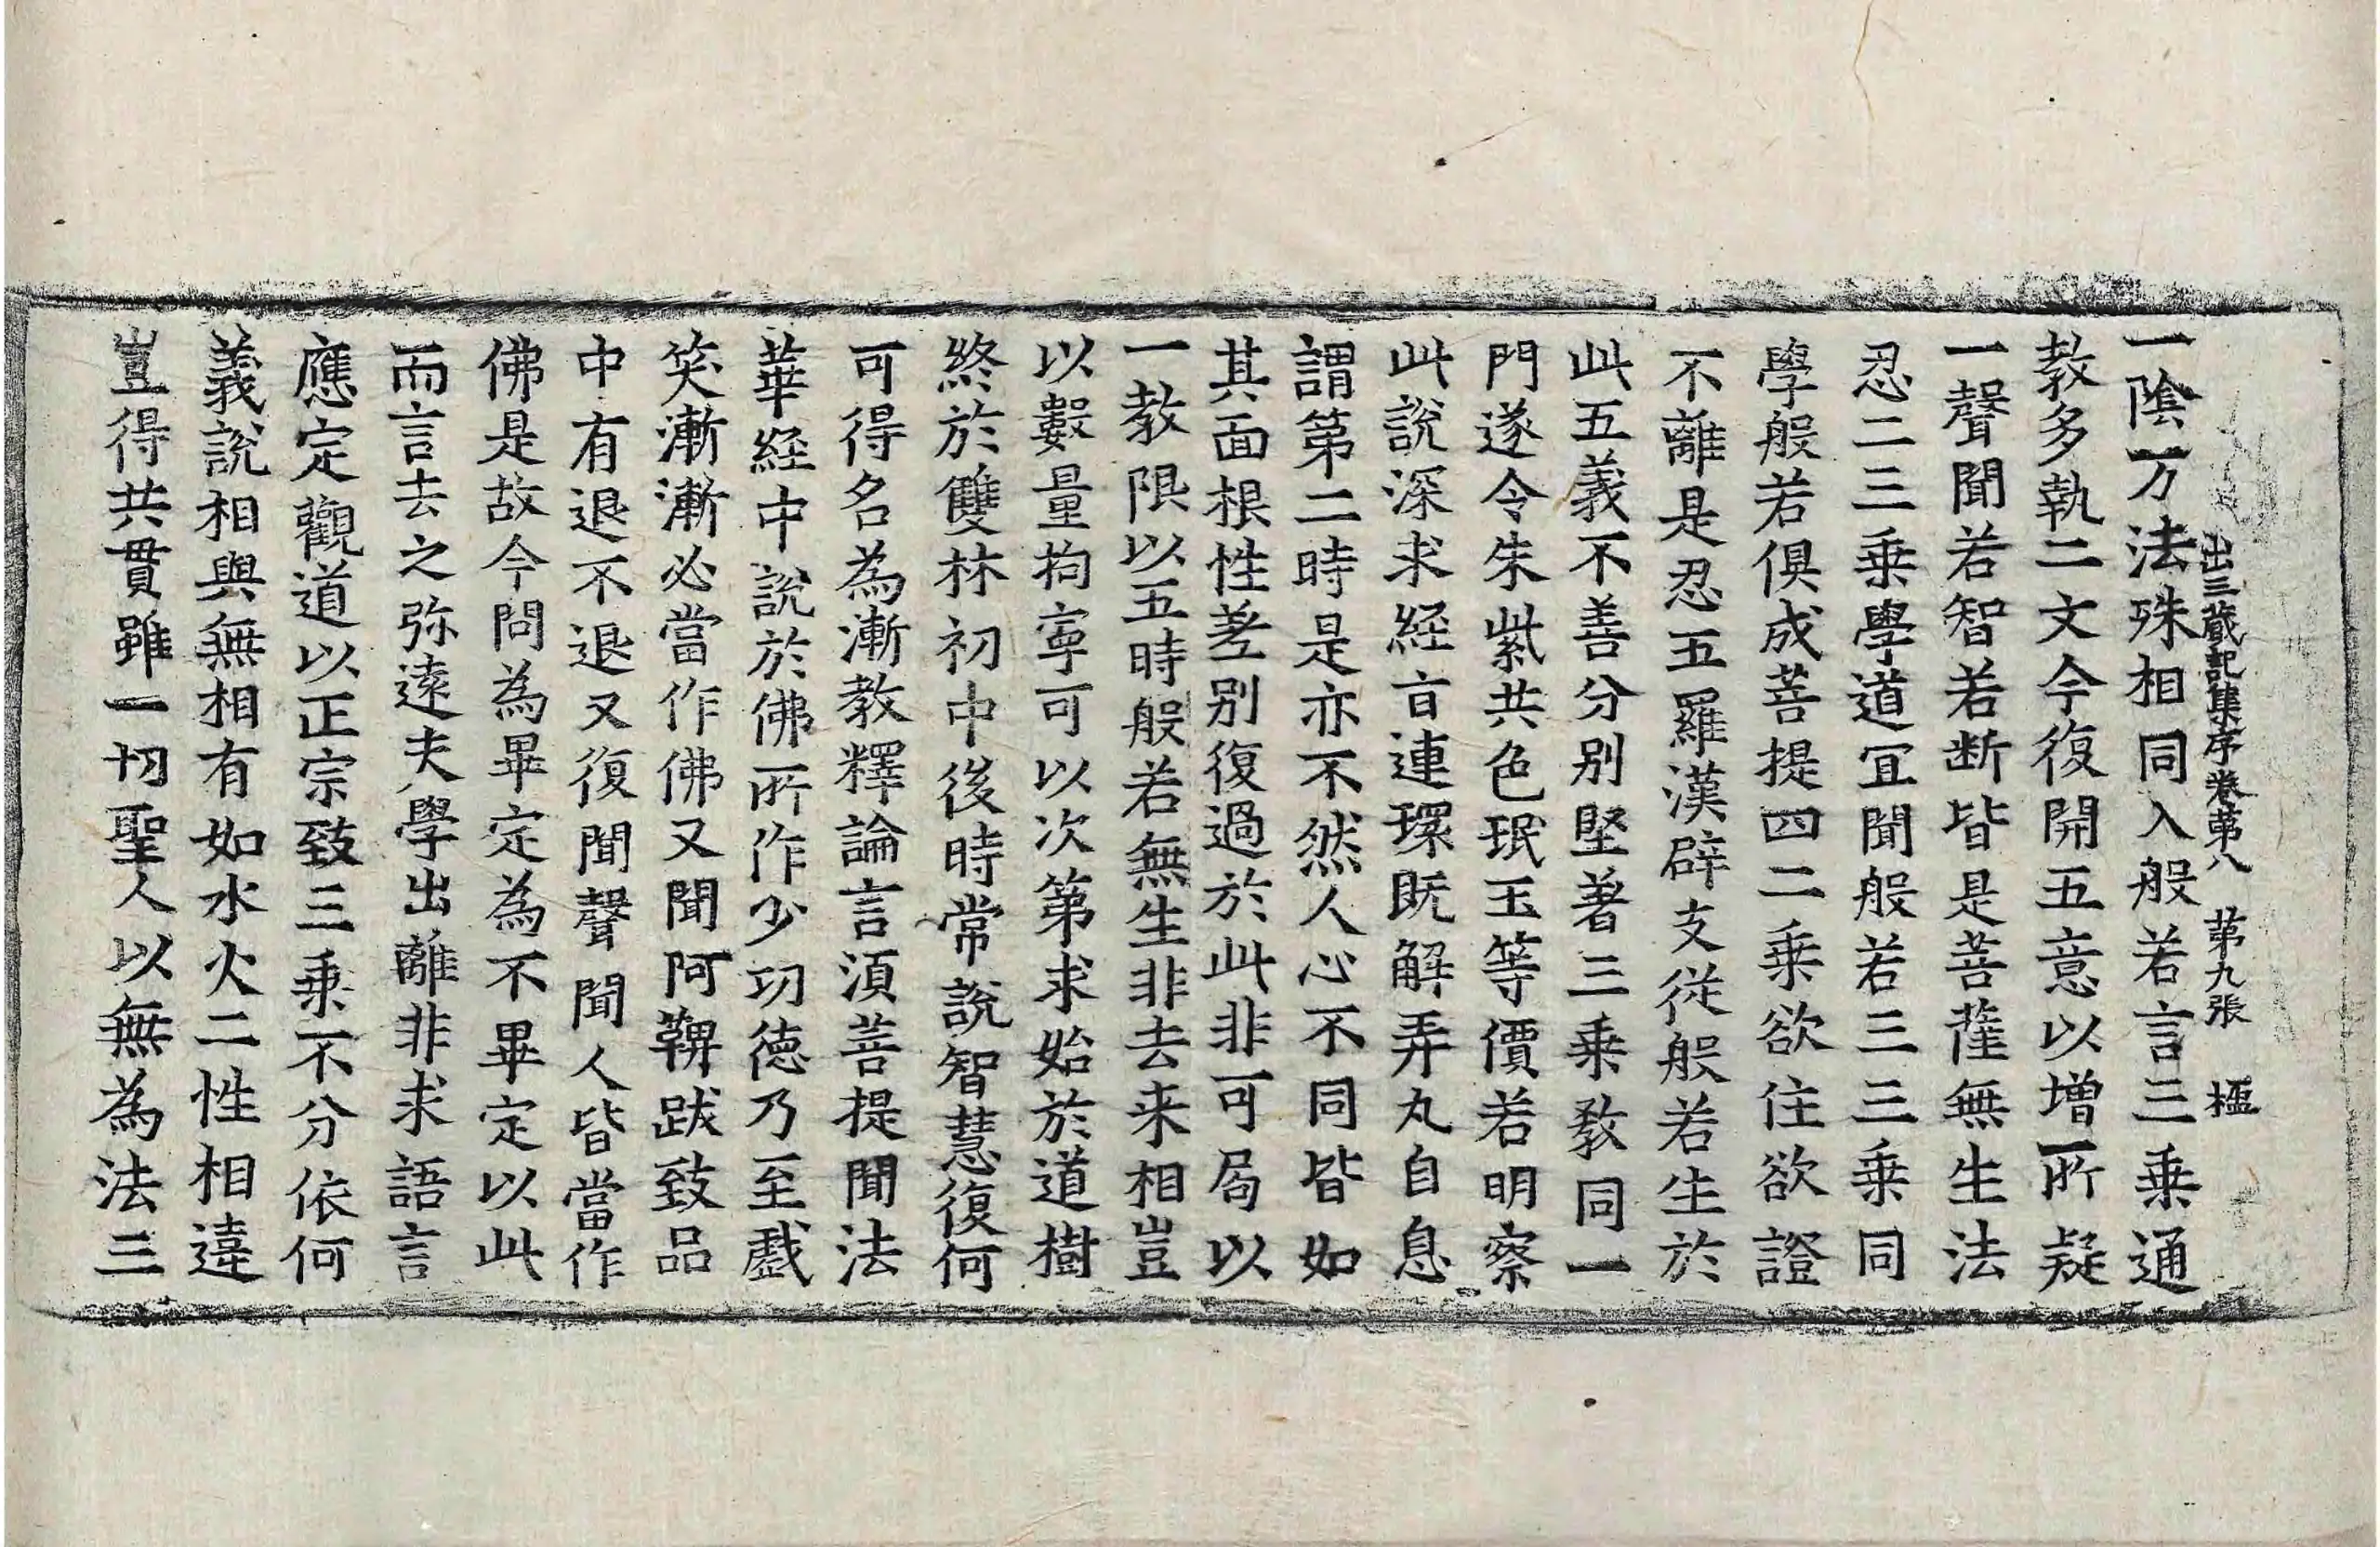 出三藏記集序卷第八　第九張　楹
一陰万法殊相同入般若言三乗通
教多執二文今復開五意以增所疑
一聲聞若智若断皆是菩薩無生法
忍二三乗學道冝聞般若三三乗同
學般若俱成菩提四二乗欲住欲證
不離是忍五羅漢辟支從般若生於
此五義不善分别堅著三乗教同一
門遂令朱紫共色珉玉等價若明察
此說深求経㫖連環既解弄丸自息
謂第二時是亦不然人心不同皆如
其面根性差别復過於此非可局以
一教限以五時般若無生非去来相豈
以數量拘寧可以次第求始於道樹
終於雙林初中後時常說智慧復何
可得名為漸教釋論言湏菩提聞法
華経中說於佛所作少功徳乃至戲
笑漸漸必當作佛又聞阿鞞跋致品
中有退不退又復聞聲聞人皆當作
佛是故今問為畢定為不畢定以此
而言去之弥逺夫學出離非求語言
應定觀道以正宗致三乗不分依何
義說相與無相有如水火二性相違
豈得共貫雖一切聖人以無為法三